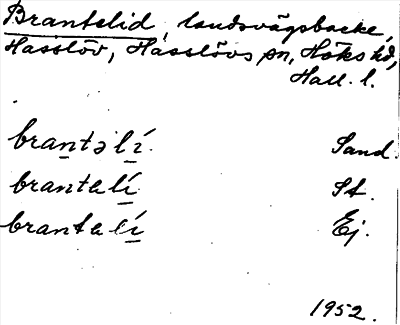 Brantelid, landsvägsbacke,
Hasslöv, Hasslövs sn, Höks hd,
Hall. l.
brantəlí. Sand.
brantalí St.
brantalí Ej.
1952.